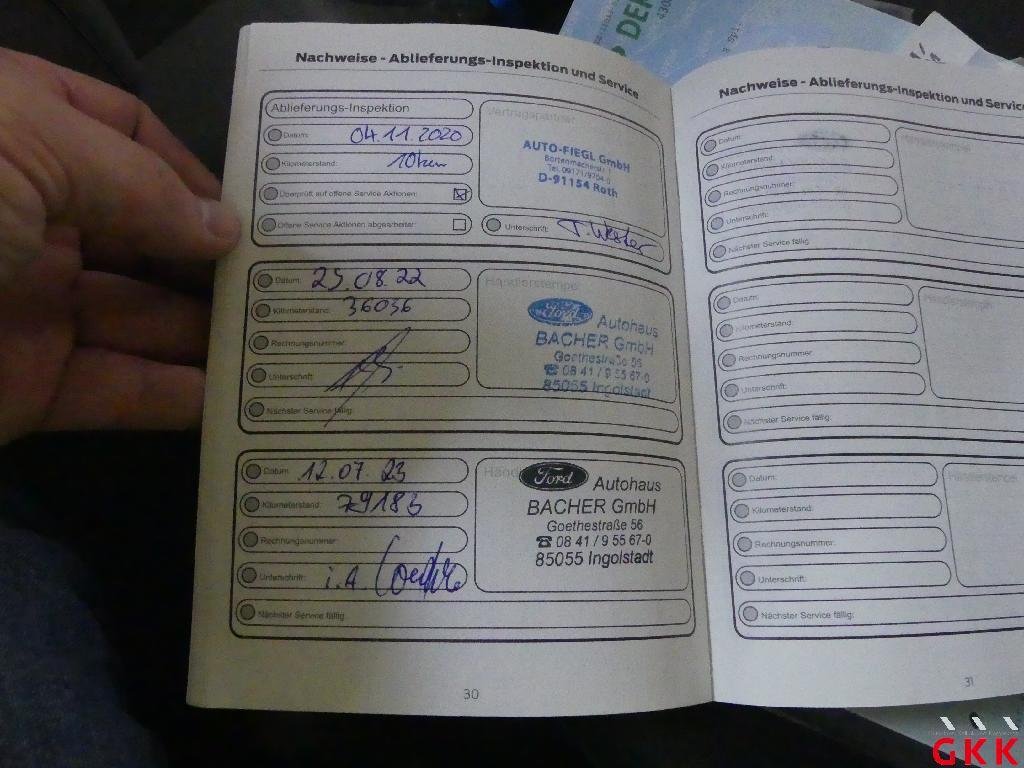 P DER
Nachweise - Ablieferungs-Inspektion und Service
Ablieferungs-Inspektion
Datum: 04.11.2020
Kilometerstand: 10km
Überprüft auf offene Service Aktionen:
Offene Service Aktionen abgearbeitet:
Vertragspartner
AUTO-FIEGL GmbH
D-91154 Roth
Unterschrift:
Datum: 25.08.22
Kilometerstand: 36036
Rechnungsnummer:
Unterschrift:
Nächster Service fällig:
Händlerstempel
Ford Autohaus
BACHER GmbH
Goethestraße 56
☎ 08 41 / 9 55 67-0
85055 Ingolstadt
Datum: 12.07.23
Kilometerstand: 79183
Rechnungsnummer:
Unterschrift: i.A.
Nächster Service fällig:
Ford Autohaus
BACHER GmbH
Goethestraße 56
☎ 08 41 / 9 55 67-0
85055 Ingolstadt
30
Nachweise - Ablieferungs-Inspektion und Service
Datum:
Kilometerstand:
Rechnungsnummer:
Unterschrift:
Nächster Service fällig:
Händlerstempel
Datum:
Kilometerstand:
Rechnungsnummer:
Unterschrift:
Nächster Service fällig:
Händlerstempel
Datum:
Kilometerstand:
Rechnungsnummer:
Unterschrift:
Nächster Service fällig:
Händlerstempel
31
GKK